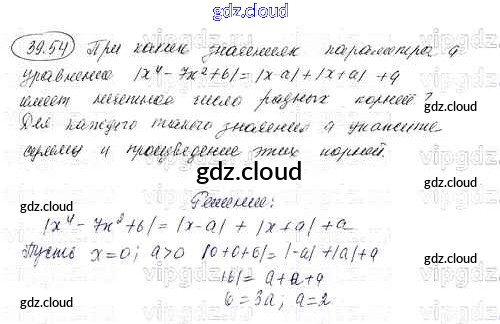 gdz.cloud
39.54 При каких значениях параметра a
уравнение |x⁴ - 7x² + 6| = |x-a| + |x+a| + a
имеет нечетное число разных корней?
Для каждого такого значения a укажите
сумму и произведение этих корней.
gdz.cloud
Решение:
|x⁴ - 7x² + 6| = |x-a| + |x+a| + a
Пусть x=0; a>0 |0+0+6| = |-a| + |a| + a
|6| = a+a+a
6 = 3a; a=2
gdz.cloud